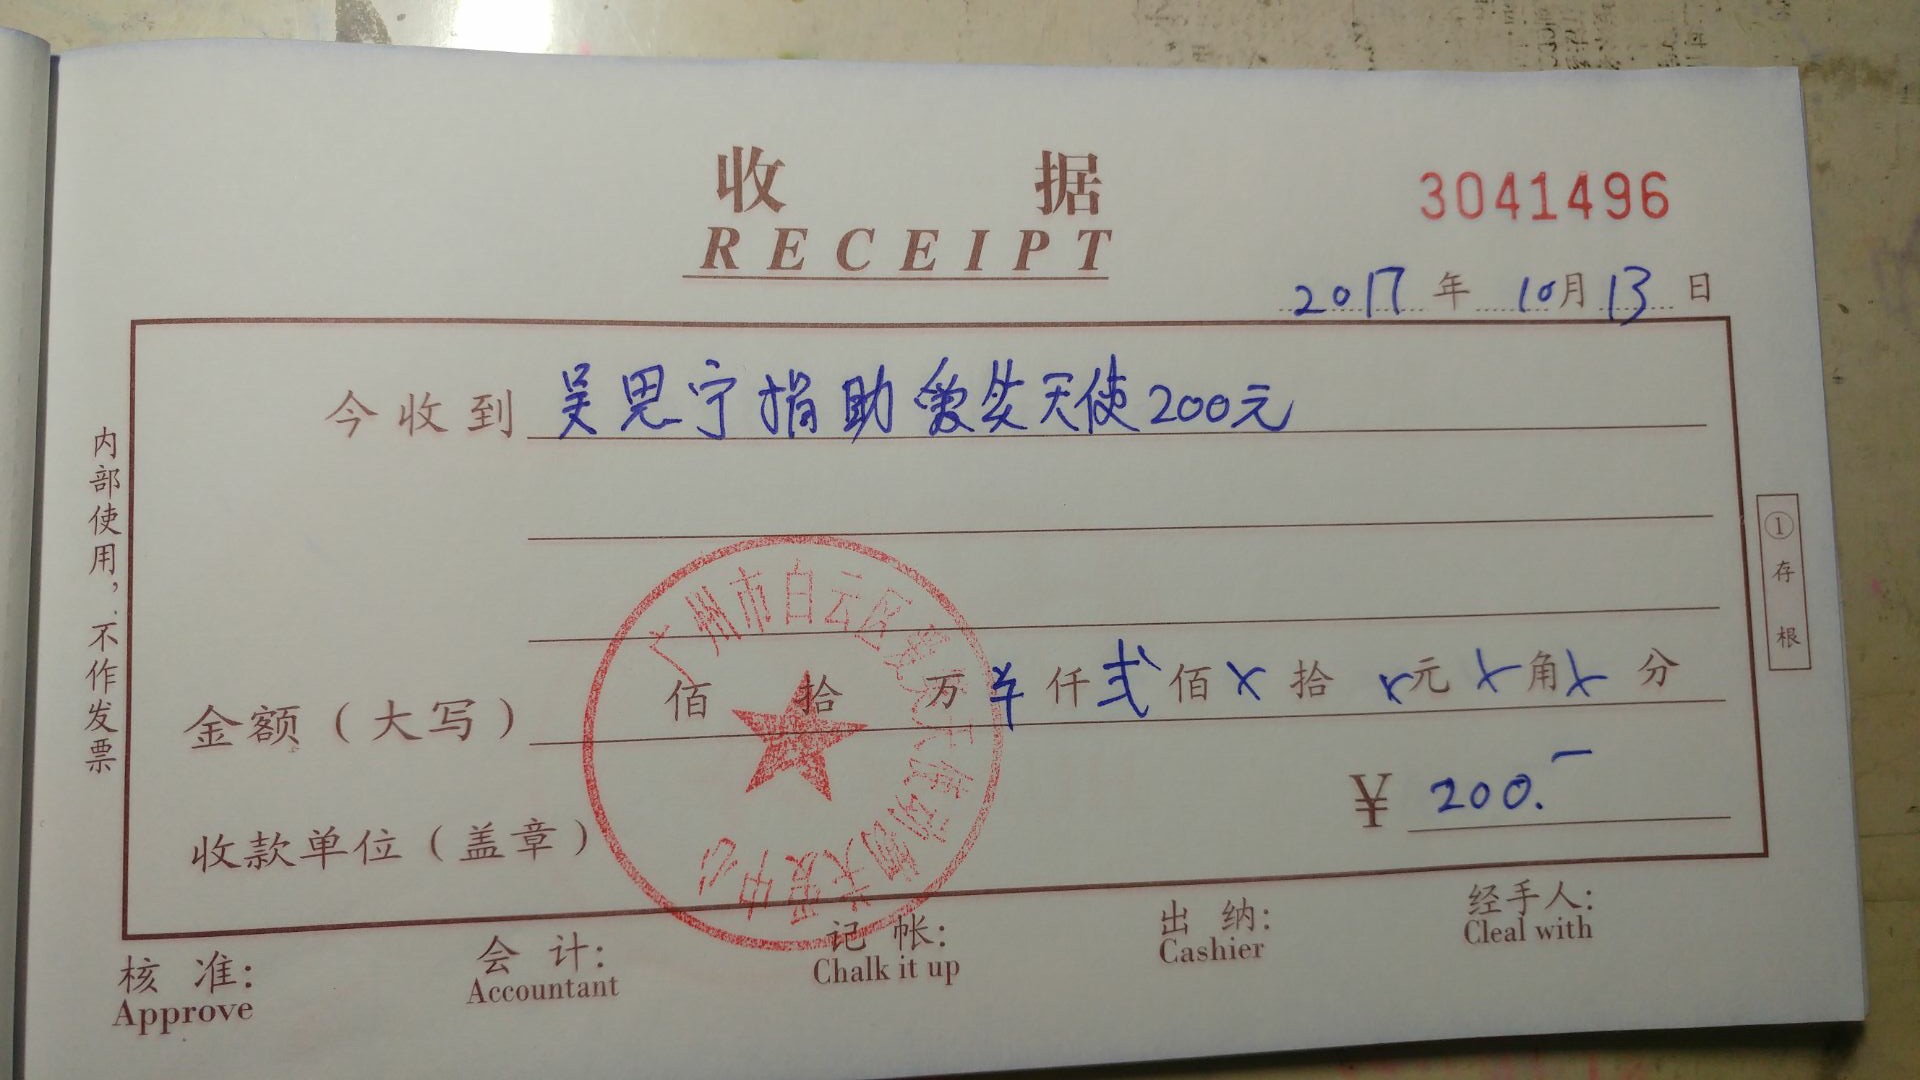 收 据
RECEIPT
3041496
2017 年 10 月 13 日
今收到 吴思宁捐助爱笑天使200元
金额（大写） 佰 拾 万 ¥ 仟 弍 佰 x 拾 x 元 x 角 x 分
¥ 200.-
收款单位（盖章）
广州市白云区 天使 中心
内部使用，不作发票
① 存根
核 准:
Approve
会 计:
Accountant
记 帐:
Chalk it up
出 纳:
Cashier
经手人:
Cleal with